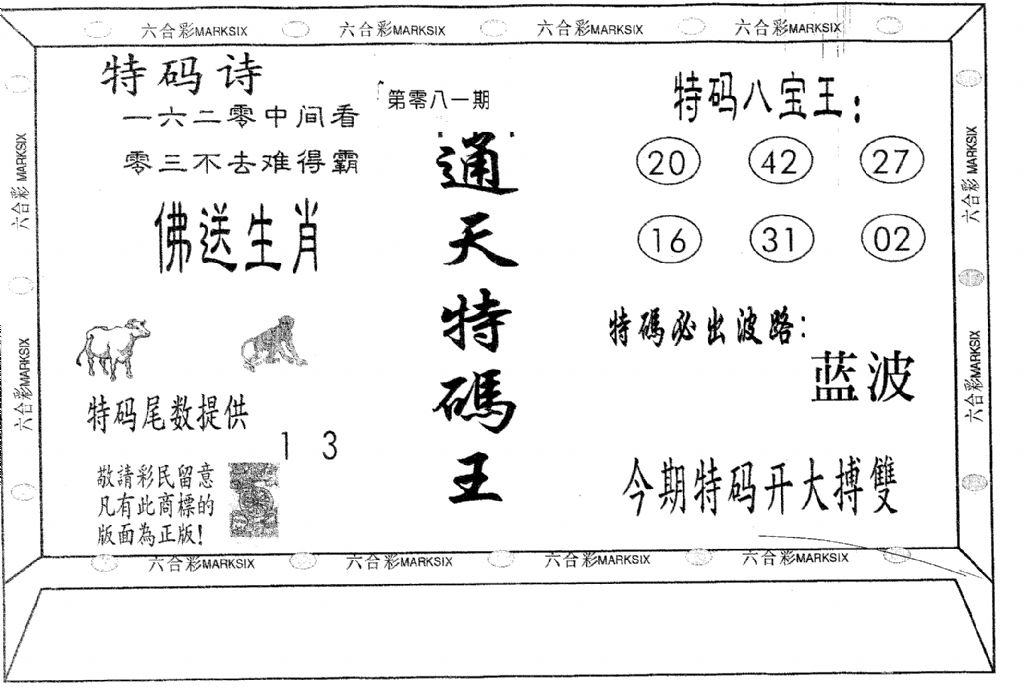 六合彩MARKSIX 六合彩MARKSIX 六合彩MARKSIX 六合彩MARKSIX
六合彩MARKSIX
六合彩MARKSIX
特码诗
一六二零中间看
零三不去难得霸
佛送生肖
特码尾数提供
1 3
敬請彩民留意
凡有此商標的
版面為正版!
第零八一期
通天特碼王
特码八宝王:
20 42 27
16 31 02
特碼必出波路:
蓝波
今期特码开大搏雙
六合彩MARKSIX
六合彩MARKSIX
六合彩MARKSIX 六合彩MARKSIX 六合彩MARKSIX 六合彩MARKSIX